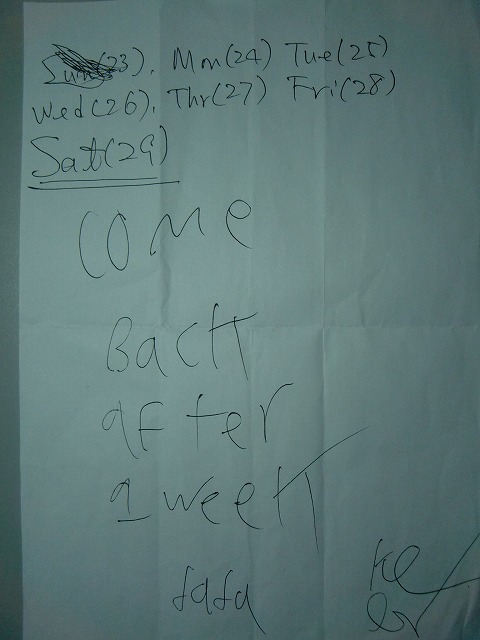 Sun(23), Mon(24) Tue(25)
Wed(26), Thr(27) Fri(28)
Sat(29)
come
Back
after
a week
fafa